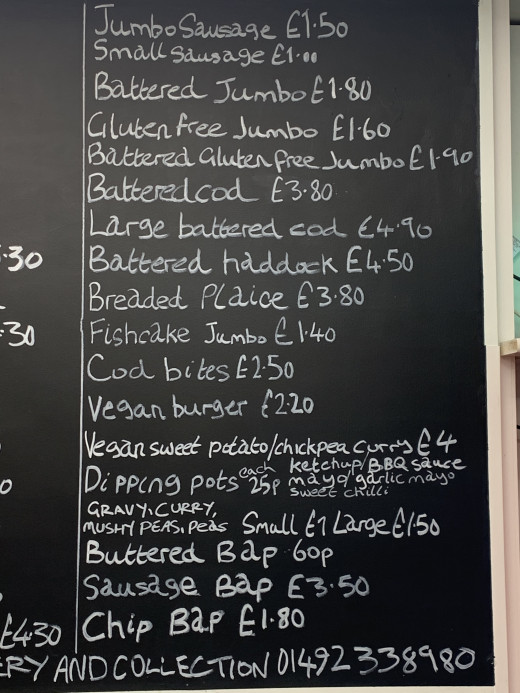 Jumbo Sausage £1.50
Small Sausage £1.00
Battered Jumbo £1.80
Gluten free Jumbo £1.60
Battered Gluten free Jumbo £1.90
Battered cod £3.80
Large battered cod £4.90
.30 Battered haddock £4.50
Breaded Plaice £3.80
.30 Fishcake Jumbo £1.40
Cod bites £2.50
Vegan burger £2.20
Vegan sweet potato/chickpea curry £4
Dipping pots each 25p ketchup/BBQ sauce
mayo/garlic mayo
sweet chilli
GRAVY, CURRY,
MUSHY PEAS, Peas Small £1 Large £1.50
0
Buttered Bap 60p
Sausage Bap £3.50
£4.30 Chip Bap £1.80
ERY AND COLLECTION 01492 338980